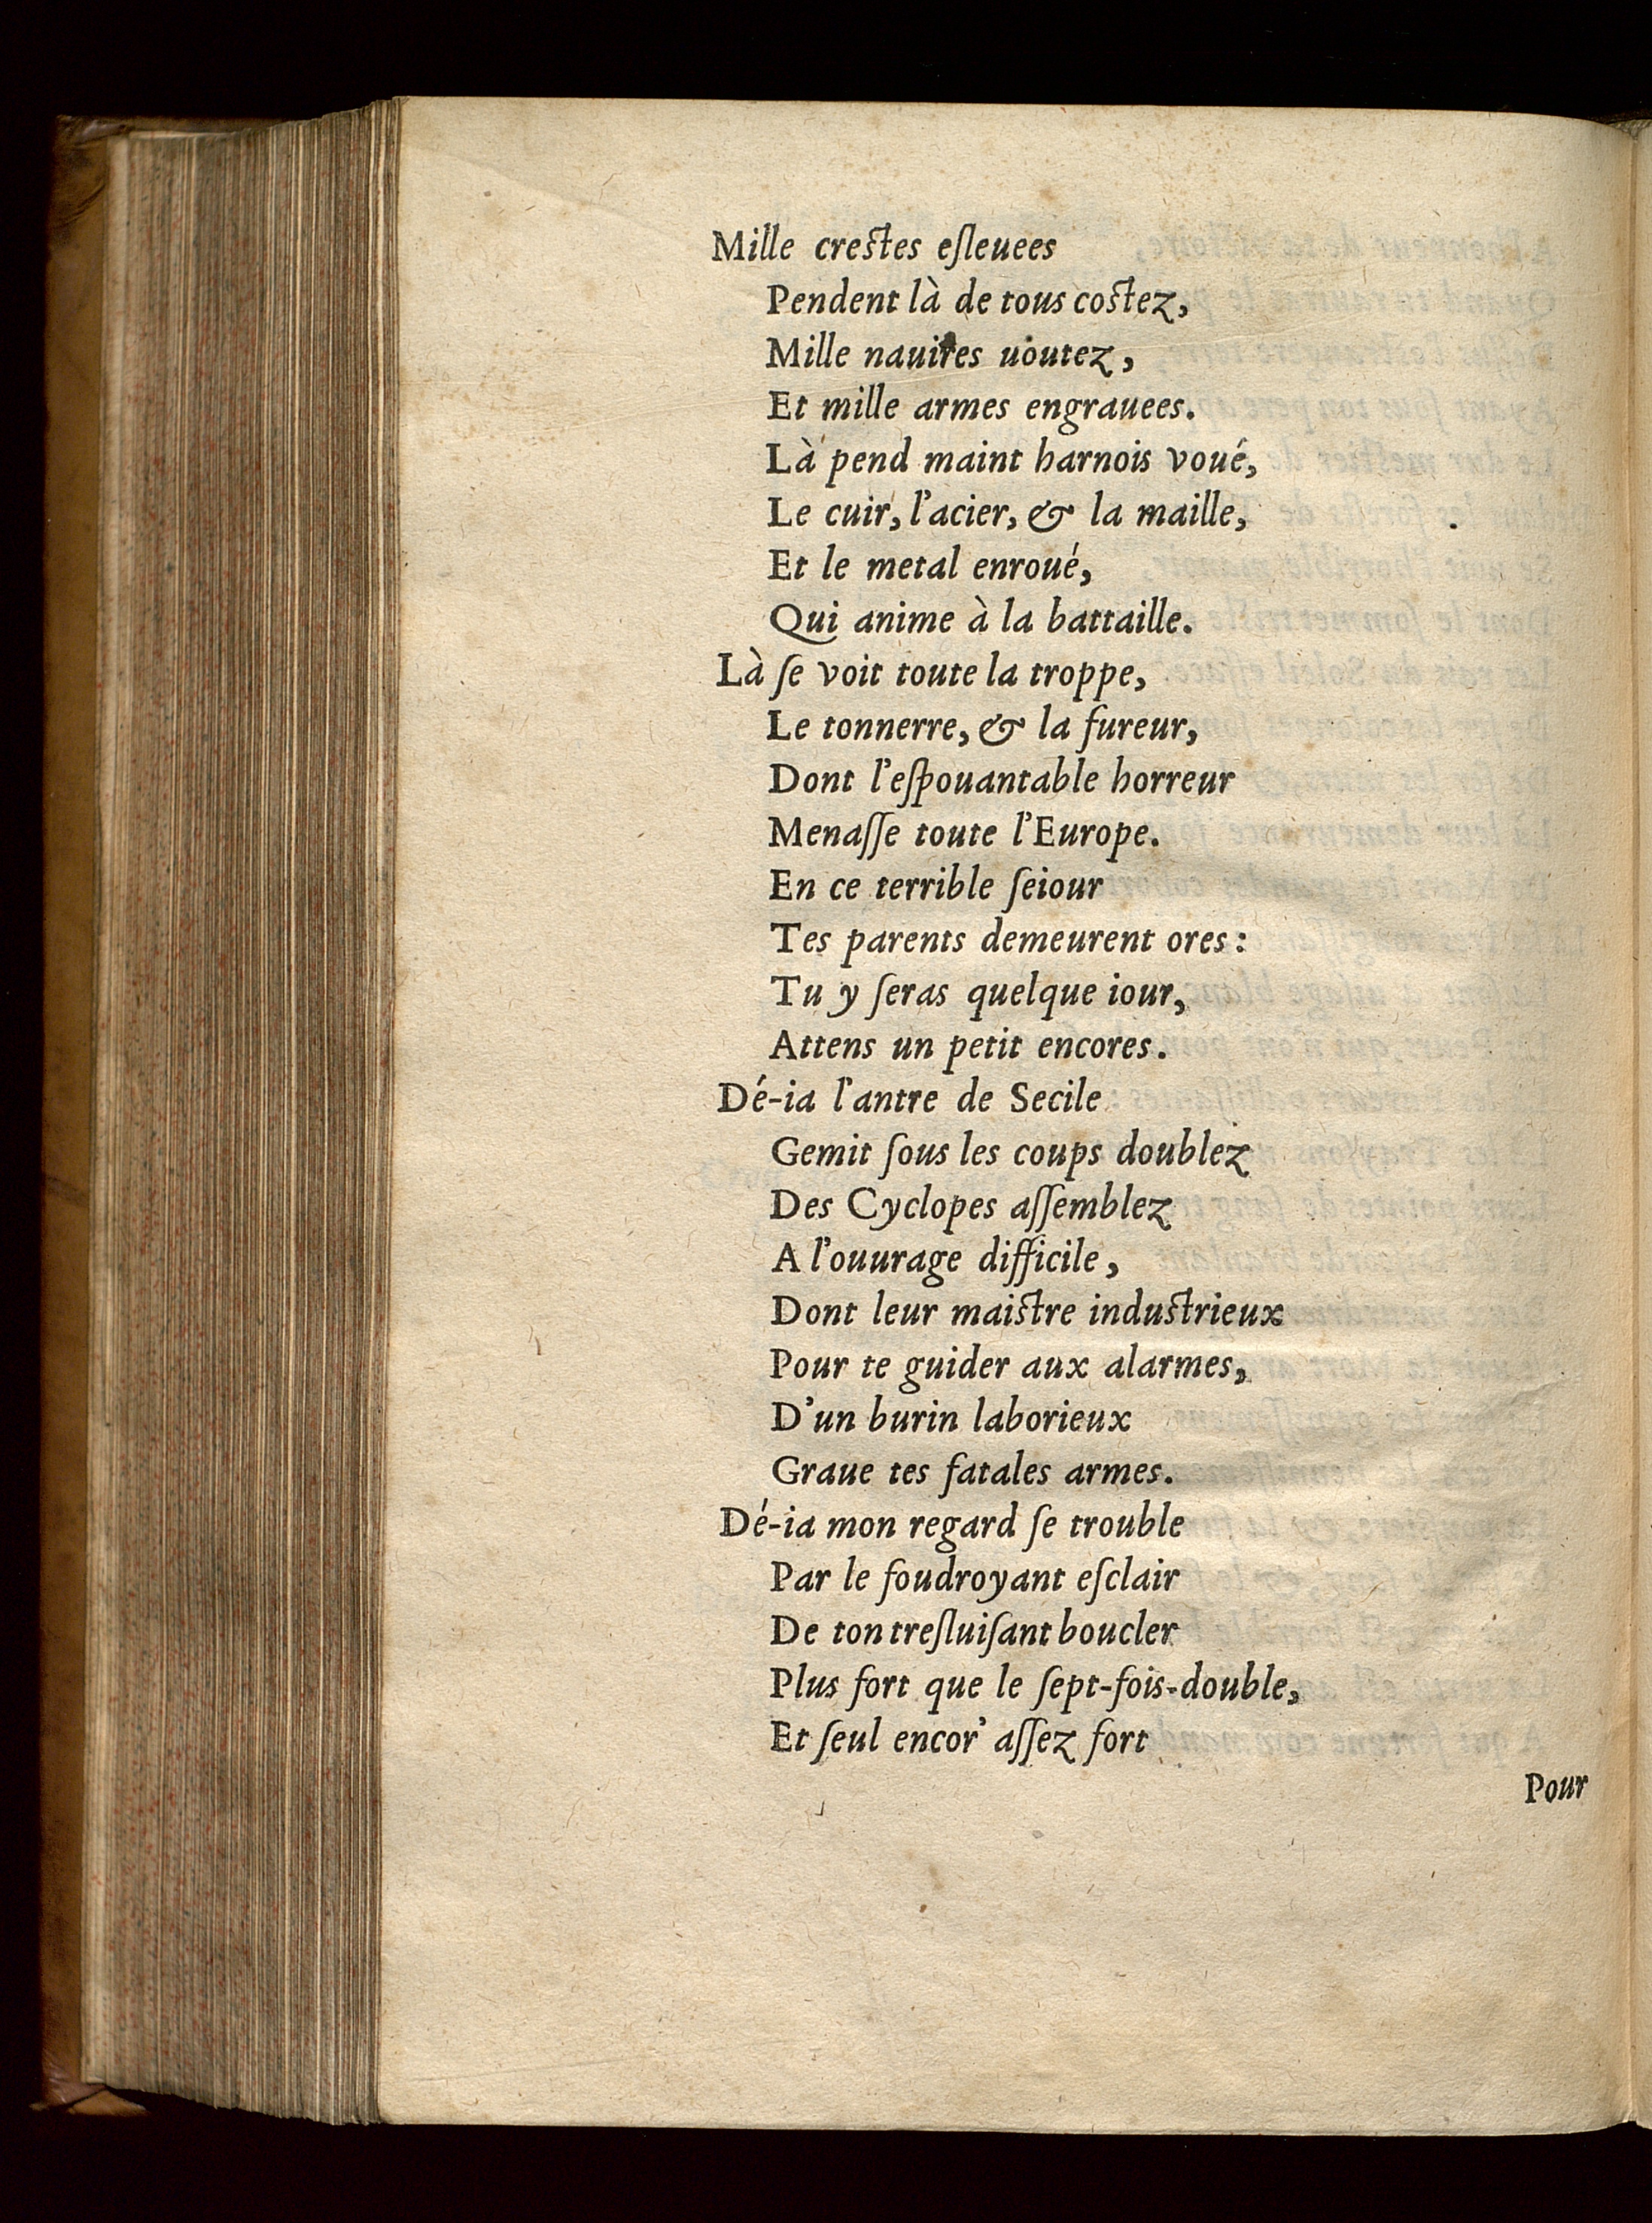 Mille crestes eſleuees
Pendent là de tous costez,
Mille nauires uoutez,
Et mille armes engrauees.
Là pend maint harnois voué,
Le cuir, l'acier, & la maille,
Et le metal enroué,
Qui anime à la battaille.
Là ſe voit toute la troppe,
Le tonnerre, & la fureur,
Dont l'eſpouantable horreur
Menaſſe toute l'Europe.
En ce terrible ſeiour
Tes parents demeurent ores:
Tu y ſeras quelque iour,
Attens un petit encores.
Dé-ia l'antre de Secile
Gemit ſous les coups doublez
Des Cyclopes aſſemblez
A l'ouurage difficile,
Dont leur maistre industrieux
Pour te guider aux alarmes,
D'un burin laborieux
Graue tes fatales armes.
Dé-ia mon regard ſe trouble
Par le foudroyant eſclair
De ton treſluiſant boucler
Plus fort que le ſept-fois-double,
Et ſeul encor' aſſez fort
Pour